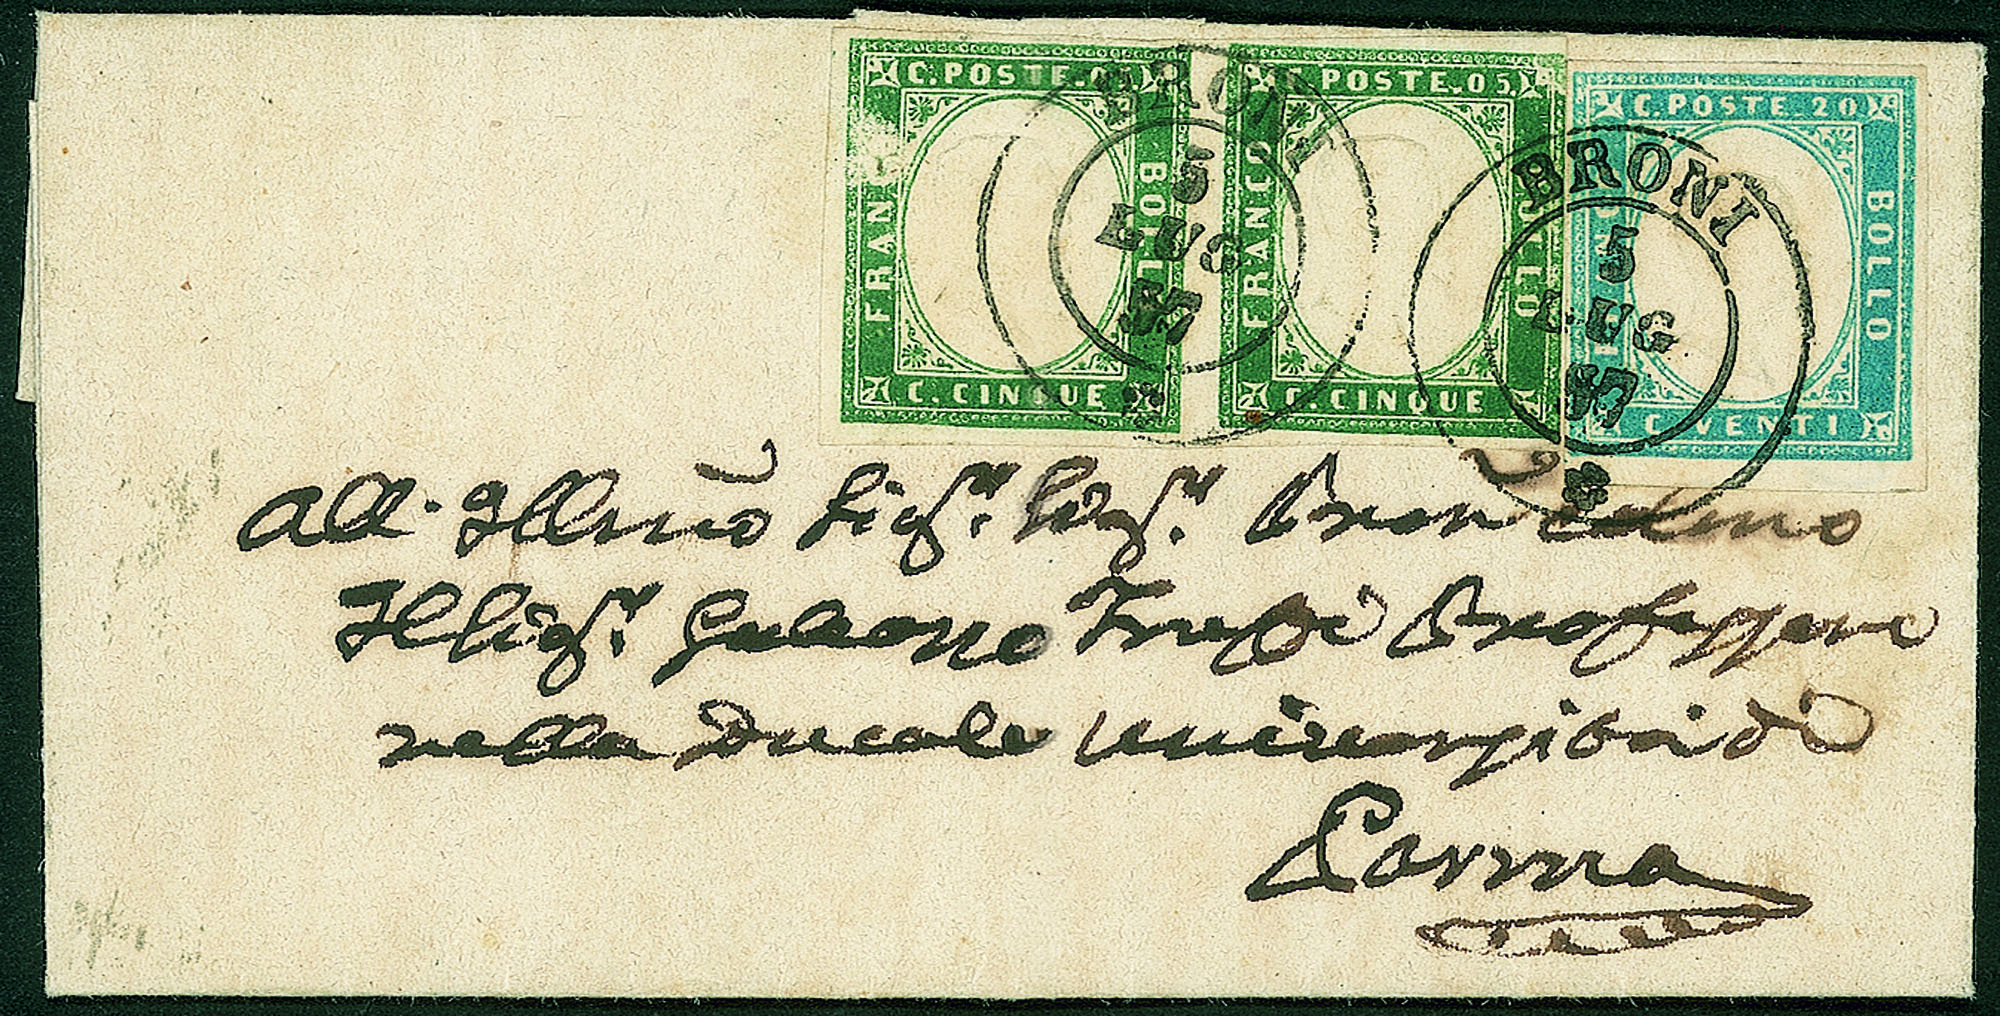 C. POSTE. 05
FRANCO
BOLLO
C. CINQUE
C. POSTE. 05
FRANCO
BOLLO
C. CINQUE
C. POSTE 20
BOLLO
C. VENTI
BRONI
5
LUG
57
BRONI
5
LUG
57
All. Illmo Sigr. Sigr. Pron Colmo
Il Sigr. Professore
nella Ducale Università di
Parma